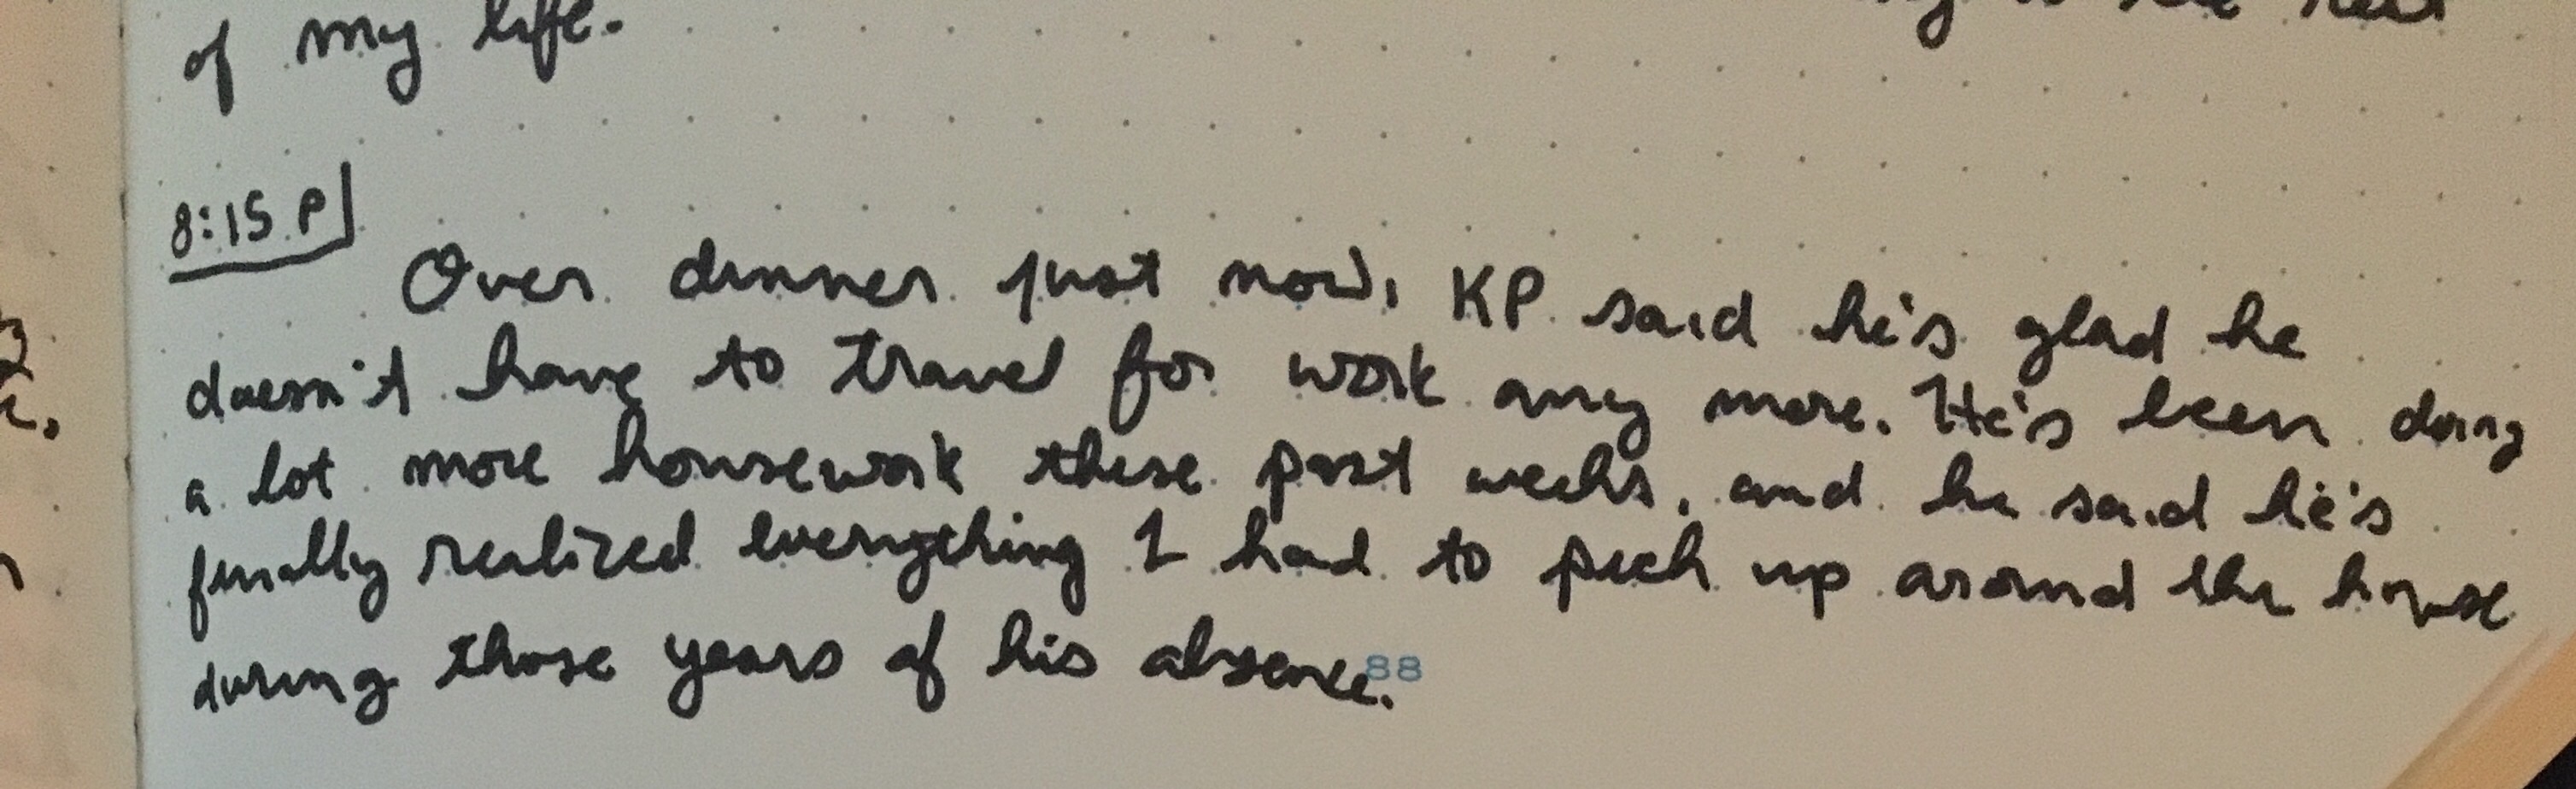 of my life.
8:15 P
Over dinner just now, KP said he's glad he
doesn't have to travel for work any more. He's been doing
a lot more housework these past weeks, and he said he's
finally realized everything I had to pick up around the house
during those years of his absence.
88